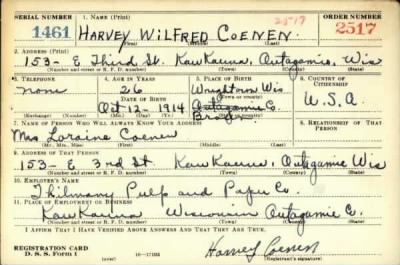 SERIAL NUMBER 1. NAME (Print) 2517 ORDER NUMBER
1461 HARVEY WILFRED COENEN. 2517
(First) (Middle) (Last)
2. ADDRESS (Print)
153- E Third St. Kaukauna, Outagamie, Wis
(Number and street or R. F. D. number) (Town) (County) (State)
3. TELEPHONE 4. AGE IN YEARS 5. PLACE OF BIRTH 6. COUNTRY OF CITIZENSHIP
none 26 Wrightown Wis
(Town or county)
DATE OF BIRTH
Oct 12- 1914 Outagamie Co. U.S.A.
Brown
(Exchange) (Number) (Mo.) (Day) (Yr.) (State or country)
7. NAME OF PERSON WHO WILL ALWAYS KNOW YOUR ADDRESS 8. RELATIONSHIP OF THAT PERSON
Mrs Loraine Coenen
(Mr., Mrs., Miss) (First) (Middle) (Last)
9. ADDRESS OF THAT PERSON
153- E 3rd St Kaukauna, Outagamie Wis
(Number and street or R. F. D. number) (Town) (County) (State)
10. EMPLOYER'S NAME
Thilmany Pulp and Paper Co.
11. PLACE OF EMPLOYMENT OR BUSINESS
Kaukauna Wisconsin Outagamie Co.
(Number and street or R. F. D. number) (Town) (County) (State)
I AFFIRM THAT I HAVE VERIFIED ABOVE ANSWERS AND THAT THEY ARE TRUE.
REGISTRATION CARD
D. S. S. Form 1 16—17105 Harvey Coenen
(Registrant's signature)